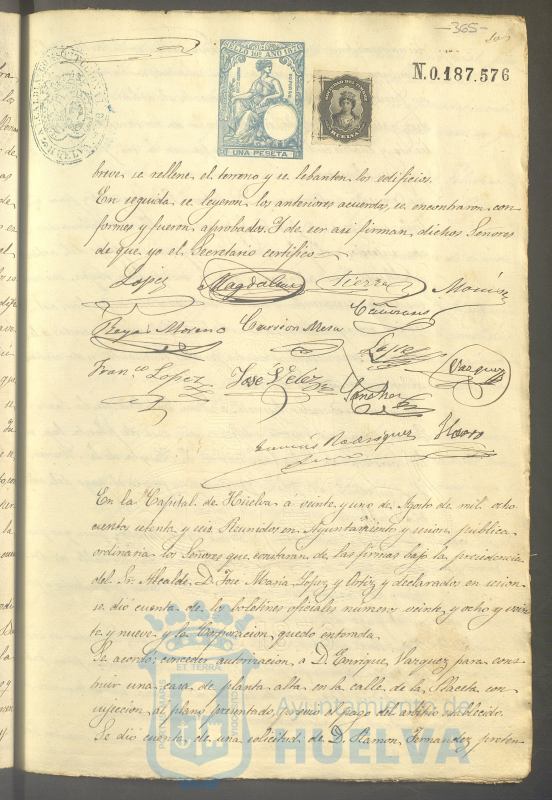 -365-
N.0.187.576
SELLO 10º AÑO 1876
UNA PESETA
HUELVA
HUELVA
breve se rellene el terreno y se lebanten los edificios.
En seguida se leyeron los anteriores acuerdos, se encontraron con
formes y fueron aprobados. Y de ser asi firman dichos Señores
de que yo el Secretario certifico
Lopez Magdalena Tierra
Reyes Moreno Carrion Mesa
Lopez Vazquez
Franco Lopez José Velez Sanchez
Rodriguez
En la Capital de Huelva á veinte y uno de Agosto de mil ocho
cientos setenta y seis Reunidos en Ayuntamiento y sesion publica
ordinaria los Señores que constaran de las firmas bajo la presidencia
del Sr. Alcalde D. José Maria Lopez y Ortiz y declarados en sesion
se dió cuenta de los boletines oficiales número veinte y ocho y vein
te y nueve y la Corporacion quedó enterada.
Se acordó conceder autorizacion á D. Enrique Vazquez para cons
truir una casa de planta alta en la calle de la Placeta con
sujecion al plano presentado, previo el pago del arbitrio establecido.
Se dió cuenta de una solicitud de D. Ramon Fernandez preten
Ayuntamiento de
HUELVA